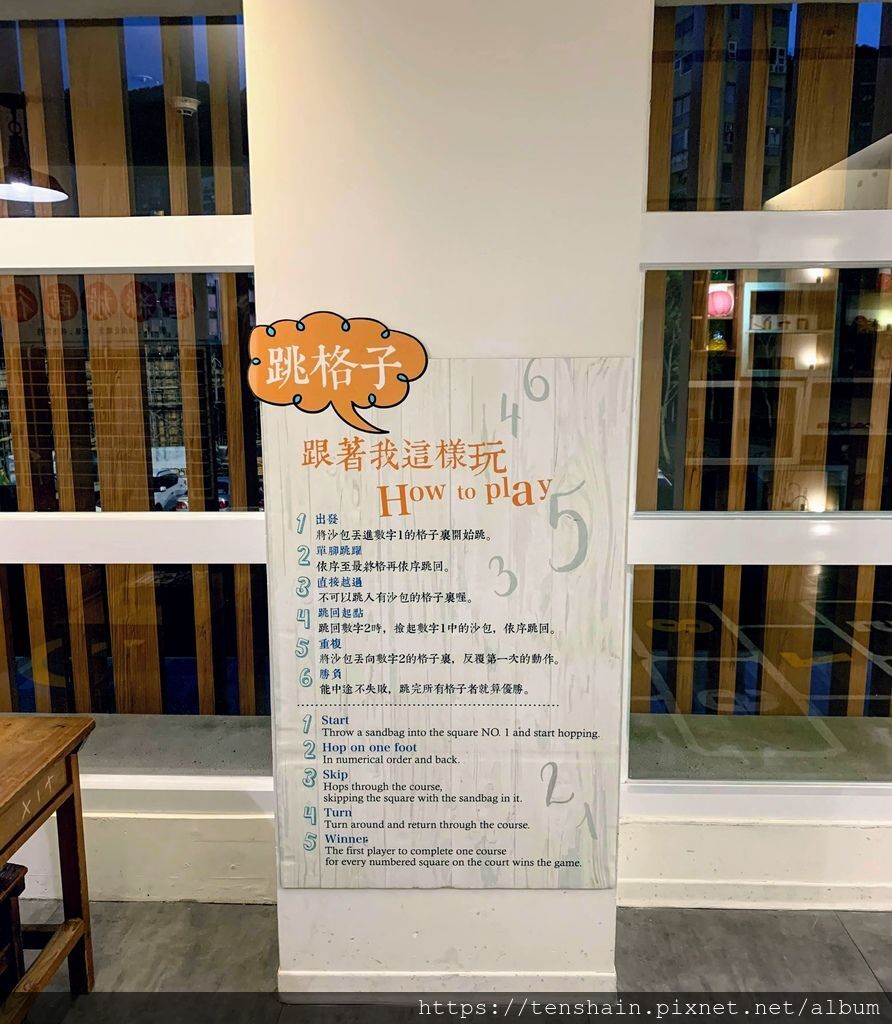 跳格子
跟著我這樣玩
How to play
6
4
5
3
1 出發
將沙包丟進數字1的格子裏開始跳。
2 單腳跳躍
依序至最終格再依序跳回。
3 直接越過
不可以跳入有沙包的格子裏喔。
4 跳回起點
跳回數字2時，撿起數字1中的沙包，依序跳回。
5 重複
將沙包丟向數字2的格子裏，反覆第一次的動作。
6 勝負
能中途不失敗，跳完所有格子者就算優勝。
1 Start
Throw a sandbag into the square NO. 1 and start hopping.
2 Hop on one foot
In numerical order and back.
3 Skip
Hops through the course,
skipping the square with the sandbag in it.
4 Turn
Turn around and return through the course.
5 Winner
The first player to complete one course
for every numbered square on the court wins the game.
2
1
https://tenshain.pixnet.net/album